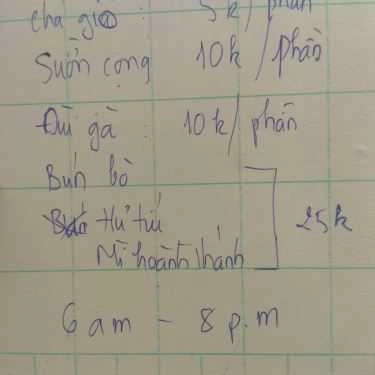 chả giò : 5k/phần
Sườn cọng 10k/phần
Đùi gà : 10k/phần
Bún bò
Hủ tiú 25k
Mì hoành thánh
6 am - 8 p.m